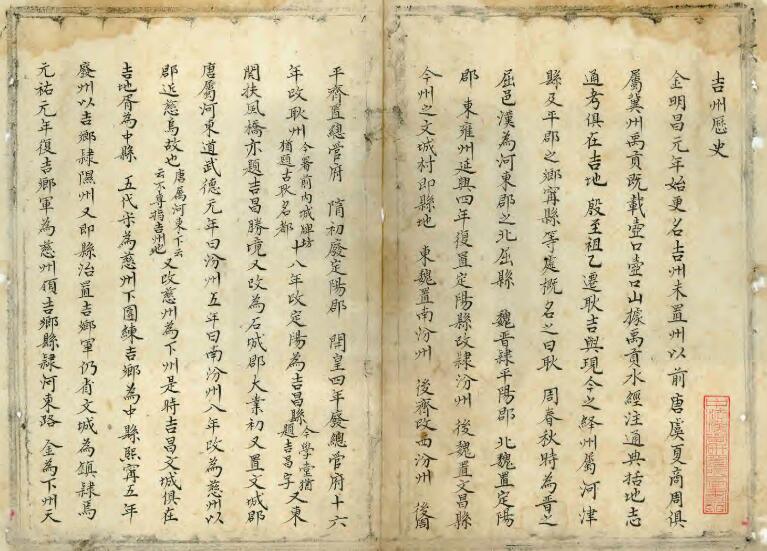 吉州歷史
金明昌元年始更名吉州未置州以前唐虞夏商周俱
屬冀州禹貢既載壺口壺口山據禹貢水經注通典括地志
通考俱在吉地 殷王祖乙遷耿吉與現今之絳州屬河津
縣及平郡之鄉寧縣等處概名之曰耿 周春秋時為晉之
屈邑漢為河東郡之北屈縣 魏晉隸平陽郡 北魏置定陽
郡 東雍州延興四年復置定陽縣改隸汾州 後魏置文昌縣
今州之文城村即縣地 東魏置南汾州 後齊改西汾州 後周
平齊置總管府 隋初廢定陽郡 開皇四年廢總管府十六
年改耿州今署前內城牌坊猶題古耿名都十八年改定陽為吉昌縣今學堂猶題吉昌字又東
関扶風橋亦題吉昌勝境又改為石城郡大業初又置文城郡
唐屬河東道武德元年曰汾州五年曰南汾州八年改為慈州以
郡近慈烏故也唐屬河東下云云不專指吉州也又改慈州為下州是時吉昌文城俱在
吉地胥為中縣 五代宋為慈州下團練吉鄉為中縣熙寧五年
廢州以吉鄉隸隰州又即縣治置吉鄉軍仍省文城為鎮隸焉
元祐元年復吉鄉軍為慈州領吉鄉縣隸河東路 金為下州天